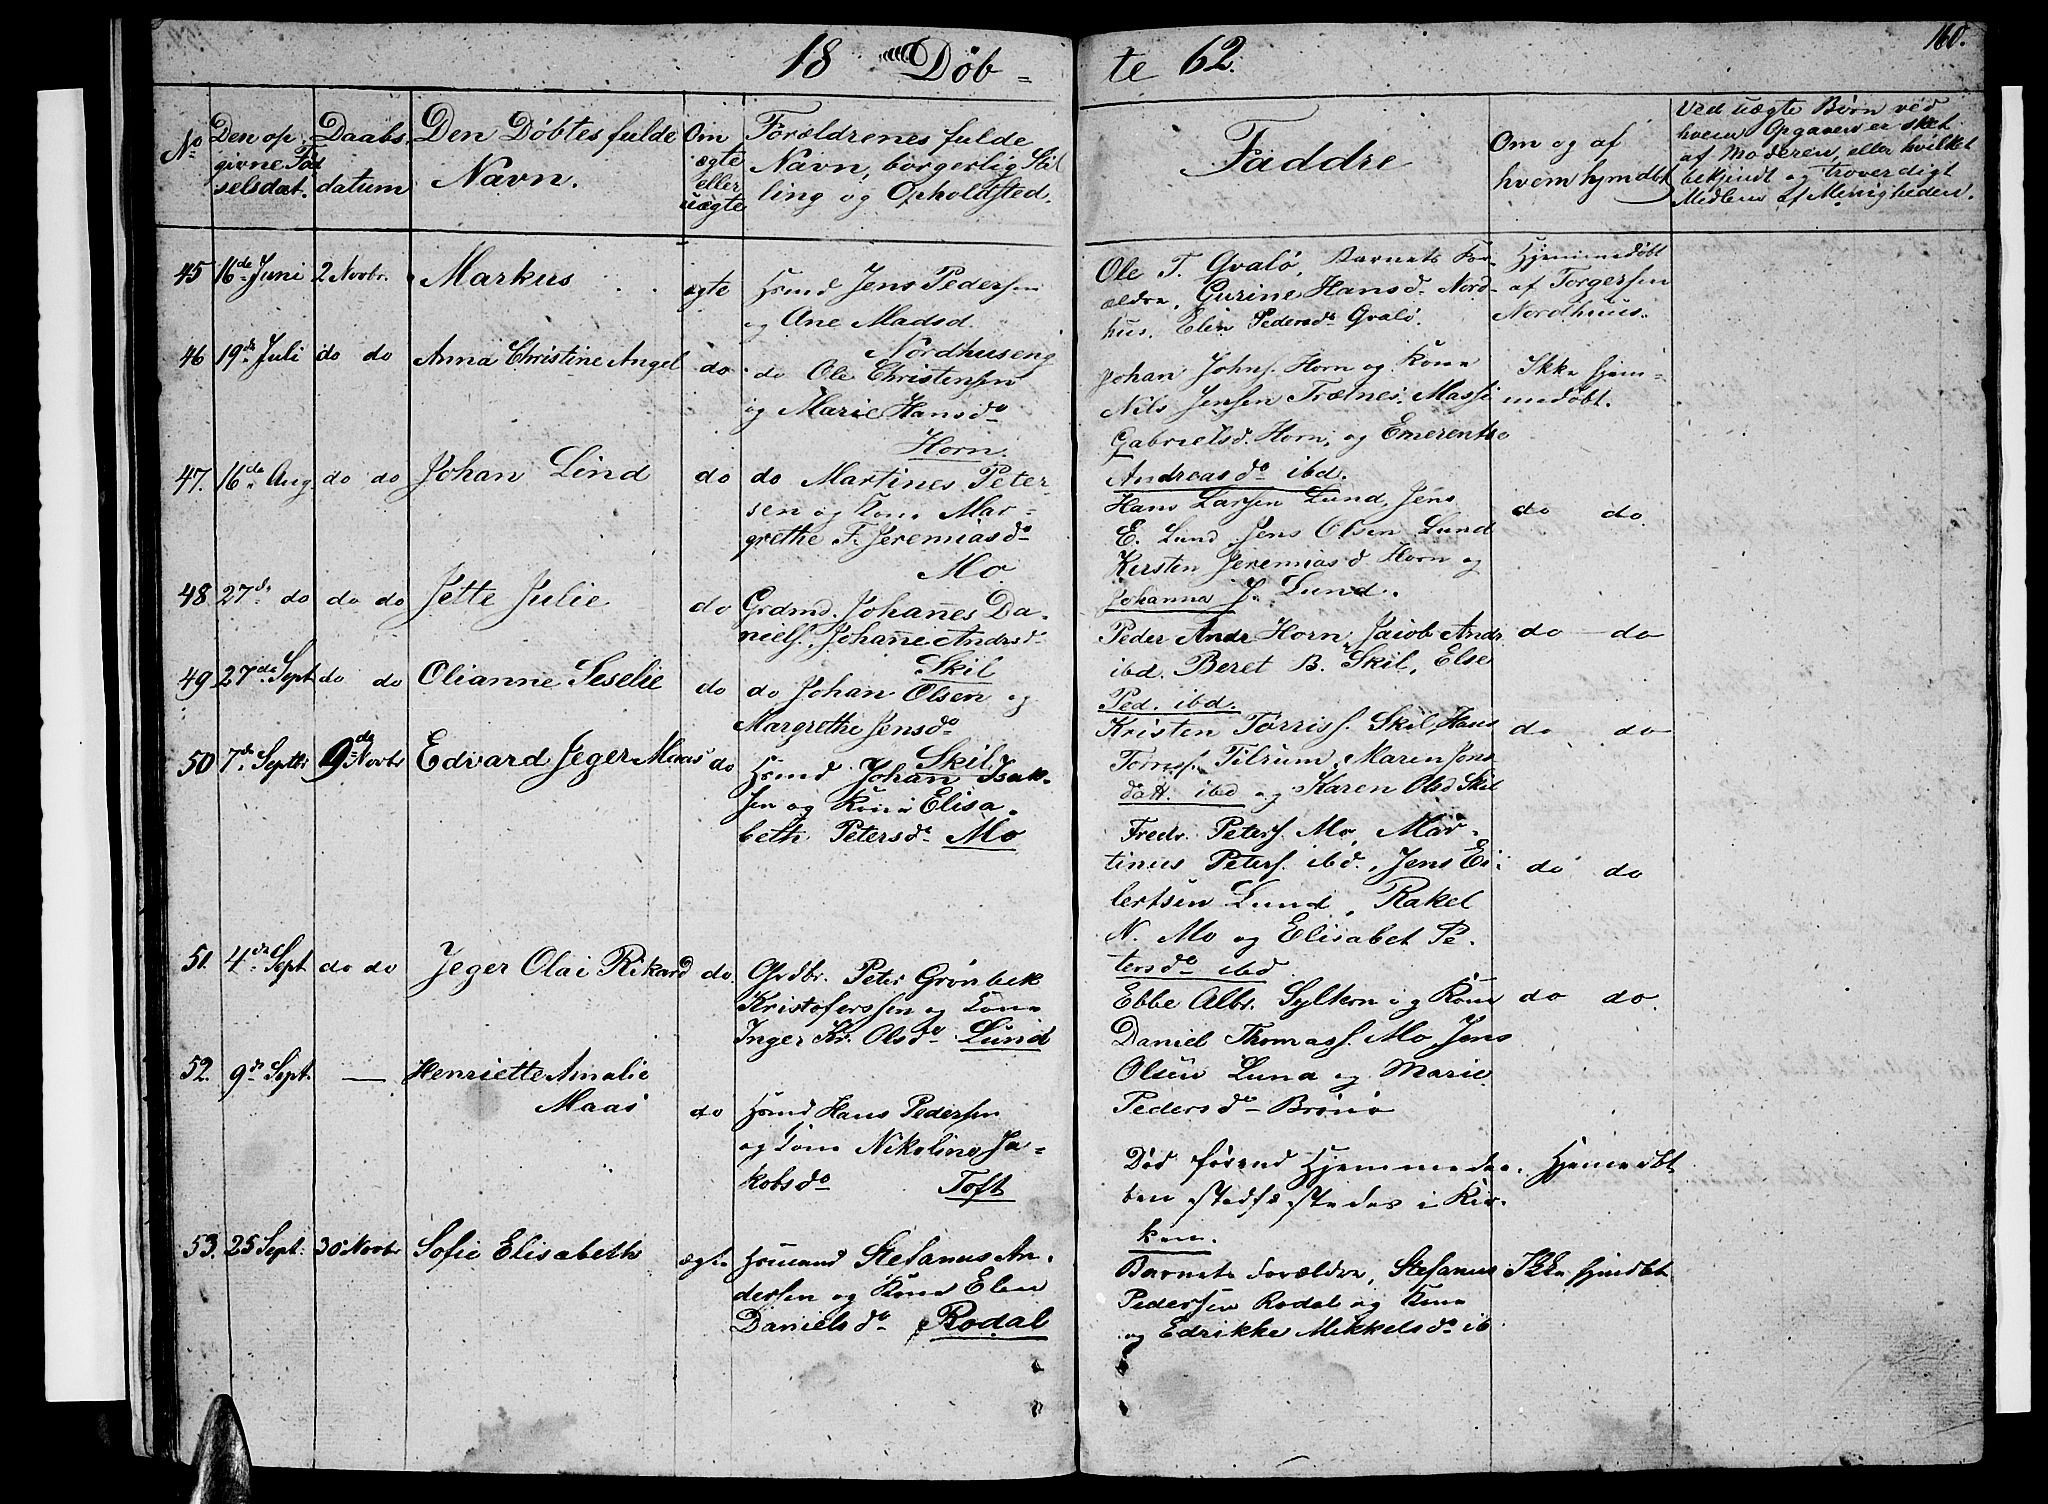 18 Døb-
te 62.
160.
No
Den op
givne Fød
selsdat.
Daabs
datum
Den Døbtes fulde
Navn.
Om
ægte
eller
uægte
Forældrenes fulde
Navn, borgerlig Stil
ling og Opholdsted.
Faddre
Om og af
hvem hjmdbt
Ved uægte Børn ved
hvem Opgaven er sket
af Moderen, eller hvilket
bekjendt og troverdigt
Medlem af Menigheden.
45 16de Juni 2 Novbr. Markus ægte Hsmd Jens Pedersen
og Ane Madsd.
Nordhuseng
Ole T. Gvalø, Barnets For-
ældre, Gurine Hansd. Nord-
hus, Elen Pedersd. Gvalø.
Hjemmedøbt
af Torgersen
Nordhuus.
46 19de Juli do do Anna Christine Angel do do Ole Christensen
og Marie Hansd.
Horn.
Johan Johns. Horn og Kone
Nils Jensen Trælnes, Massi
Gabrielsd. Horn, og Emerentse
Andreasd. ibd.
Ikke hjem-
medøbt.
47. 16de Aug. do do Johan Lind do do Martines Peter-
sen og Kone Mar-
grethe F. Jeremiasd.
Mo
Hans Larsen Lund, Jens
E. Lund, Jens Olsen Lund
Kirsten Jeremiasd Horn og
Johanna J. Lund.
do do.
48 27de do do do Jette Julie do Grdmd. Johannes Da-
niels. Johanne Andrsd.
Skil
Peder Andr Horn, Jacob Andr
ibd. Beret B. Skil, Else
Ped. ibd.
do do
49 27de Sept do do Olianne Seselie do do Johan Olsen og
Margrethe Jensd.
Skil
Kristen Torriss. Skil, Hans
Torris. Tilrum, Maren Jons
datt. ibd og Karen Olsd Skil
do do
50 7de Septbr 9de Novbr Edvard Jeger Maas do Hsmd Johan Isak-
sen og Kone Elisa-
beth Petersd. Mo
Fredr. Peters. Mo, Mar-
tinus Peters. ibd, Jens Ei-
lertsen Lund, Rakel
N. Mo og Elisabet Pe-
tersd. ibd
do do
51. 4de Sept do do Jeger Olai Rikard do. Grdbr. Peter Grønbek
Kristoferssen og Kone
Inger Kr. Olsd. Lund
Ebbe Albr. Sylten og Kone
Daniel Thomass. Mo, Jens
Olsen Lund og Marie
Pedersd. Brønø
do do.
52. 9de Sept. — Henriette Amalie
Maas
do Hsmd Hans Pedersen
og Kone Nikoline Ja-
kobsd. Toft
Død førend Hjemmedaa-
ben stadfæstedes i Kir-
ken.
Hjemmedbt
53. 25 Sept. 30 Novbr Sofie Elisabeth ægte Hsmand Stefanus An-
dersen og Kone Elen
Danielsd. Rodal
Barnets Forældre, Stefanus
Pedersen Rodal og Kone
og Edrikke Mikkelsd. ib
Ikke hjmdbt